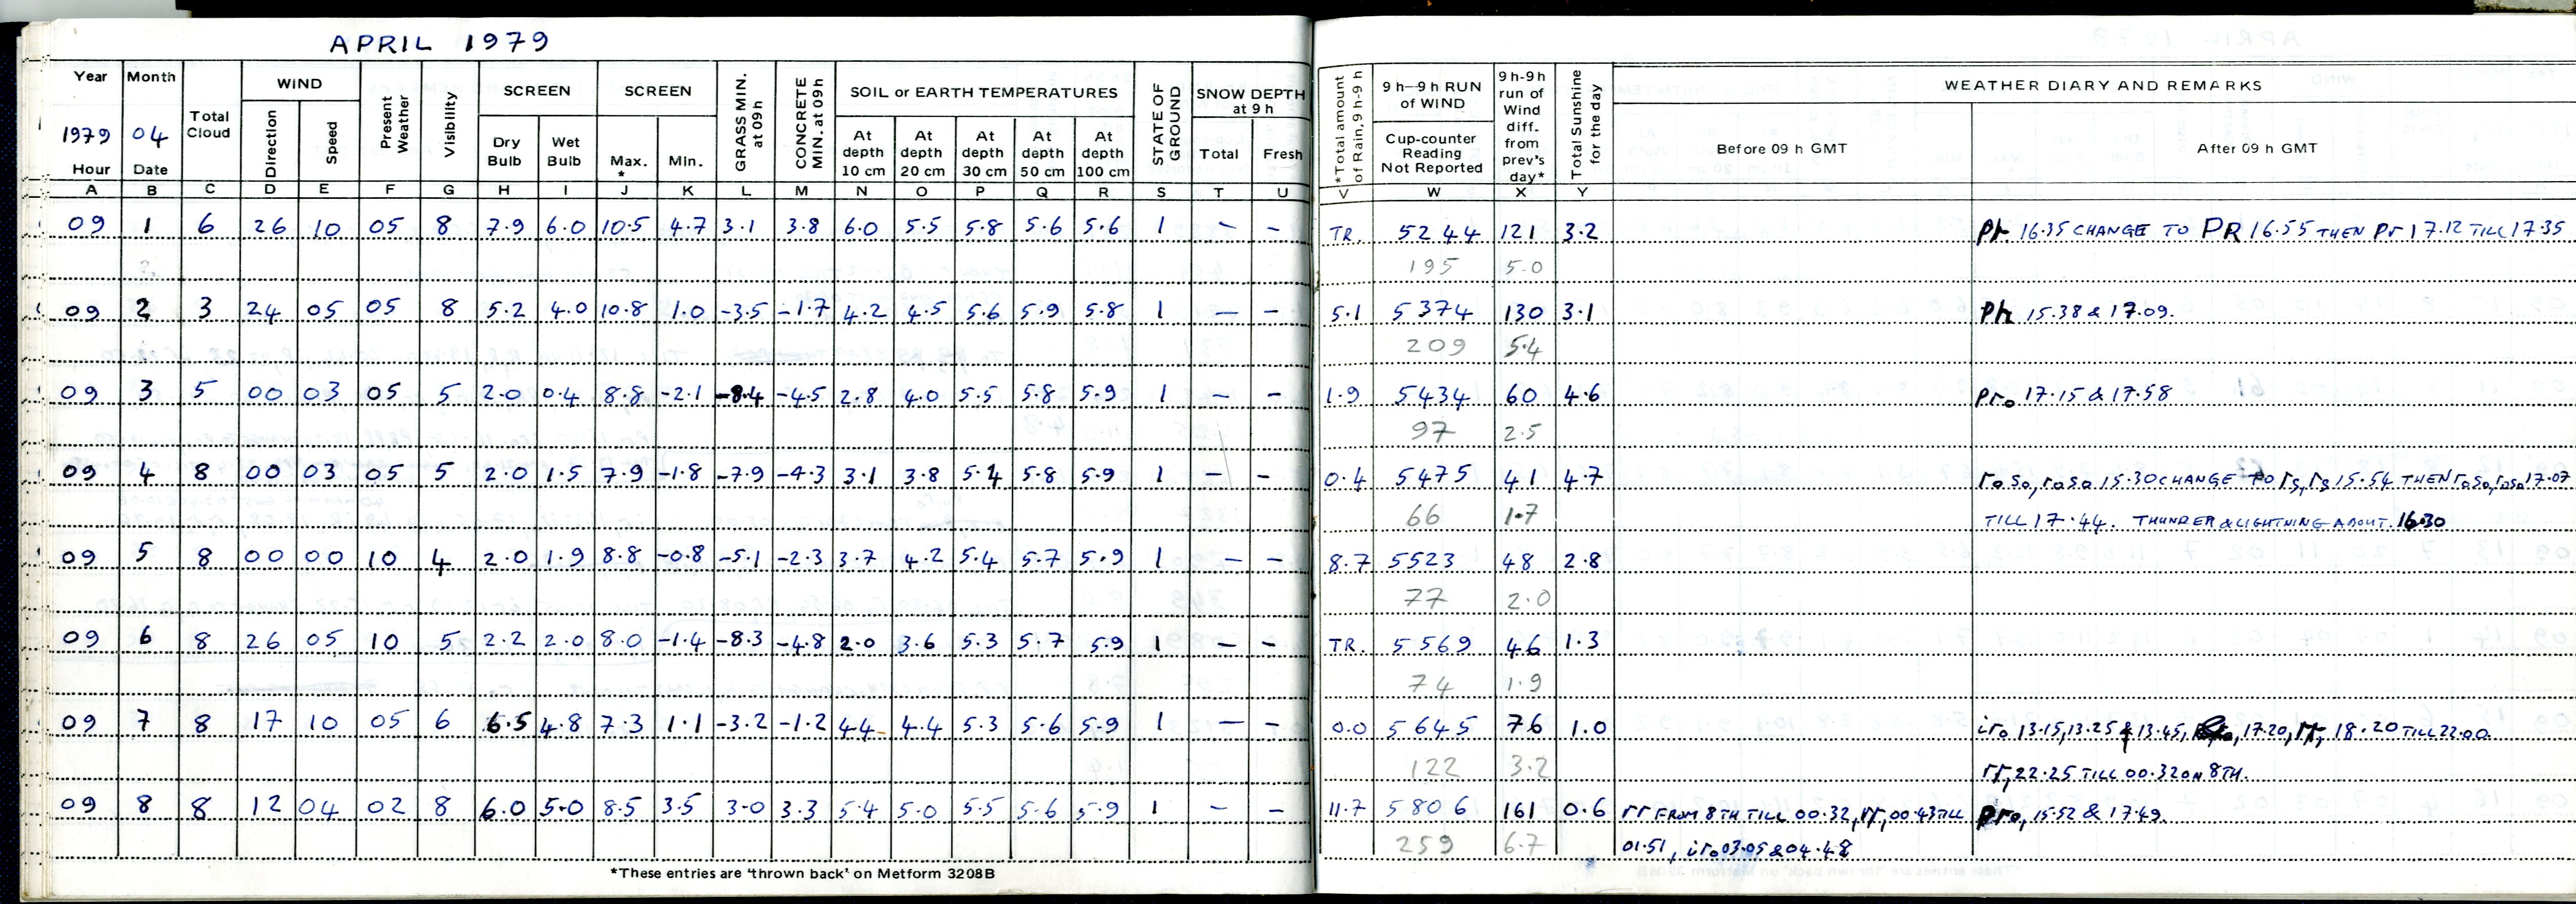 APRIL 1979
Year Month Total Cloud WIND Present Weather Visibility SCREEN SCREEN GRASS MIN. at 09h CONCRETE MIN. at 09h SOIL or EARTH TEMPERATURES STATE OF GROUND SNOW DEPTH at 9 h *Total amount of Rain, 9h-9h 9 h—9 h RUN of WIND 9 h-9 h run of Wind diff. from prev's day* Total Sunshine for the day WEATHER DIARY AND REMARKS
1979 04 Direction Speed Dry Bulb Wet Bulb Max. * Min. At depth 10 cm At depth 20 cm At depth 30 cm At depth 50 cm At depth 100 cm Total Fresh Cup-counter Reading Not Reported Before 09 h GMT After 09 h GMT
Hour Date
A B C D E F G H I J K L M N O P Q R S T U V W X Y
09 1 6 26 10 05 8 7.9 6.0 10.5 4.7 3.1 3.8 6.0 5.5 5.8 5.6 5.6 1 — — TR. 5244 121 3.2 Pr 16.35 CHANGE TO PR 16.55 THEN Pr 17.12 TILL 17.35
195 5.0
09 2 3 24 05 05 8 5.2 4.0 10.8 1.0 -3.5 -1.7 4.2 4.5 5.6 5.9 5.8 1 — — 5.1 5374 130 3.1 Ph 15.38 & 17.09.
209 5.4
09 3 5 00 03 05 5 2.0 0.4 8.8 -2.1 -8.4 -4.5 2.8 4.0 5.5 5.8 5.9 1 — — 1.9 5434 60 4.6 Pro 17.15 & 17.58
97 2.5
09 4 8 00 03 05 5 2.0 1.5 7.9 -1.8 -7.9 -4.3 3.1 3.8 5.4 5.8 5.9 1 — — 0.4 5475 41 4.7 roso, roso 15.30 CHANGE TO rs, rs 15.54 THEN roso, roso 17.07
66 1.7 TILL 17.44. THUNDER & LIGHTNING ABOUT 16.30
09 5 8 00 00 10 4 2.0 1.9 8.8 -0.8 -5.1 -2.3 3.7 4.2 5.4 5.7 5.9 1 — — 8.7 5523 48 2.8
77 2.0
09 6 8 26 05 10 5 2.2 2.0 8.0 -1.4 -8.3 -4.8 2.0 3.6 5.3 5.7 5.9 1 — — TR. 5569 46 1.3
74 1.9
09 7 8 17 10 05 6 6.5 4.8 7.3 1.1 -3.2 -1.2 4.4 4.4 5.3 5.6 5.9 1 — — 0.0 5645 76 1.0 iro 13.15, 13.25 & 13.45, 17.20, rr, 18.20 TILL 22.00.
122 3.2 rr, 22.25 TILL 00.32 ON 8TH.
09 8 8 12 04 02 8 6.0 5.0 8.5 3.5 3.0 3.3 5.4 5.0 5.5 5.6 5.9 1 — — 11.7 5806 161 0.6 rr FROM 8TH TILL 00.32, rr, 00.43 TILL pro, 15.52 & 17.49.
259 6.7 01.51, iro 03.05 & 04.48
*These entries are 'thrown back' on Metform 3208B